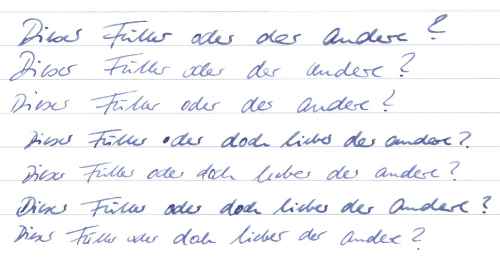 Dieser Füller oder der andere?
Dieser Füller oder der andere?
Dieser Füller oder der andere?
Dieser Füller oder doch lieber der andere?
Dieser Füller oder doch lieber der andere?
Dieser Füller oder doch lieber der andere?
Dieser Füller oder doch lieber der andere?